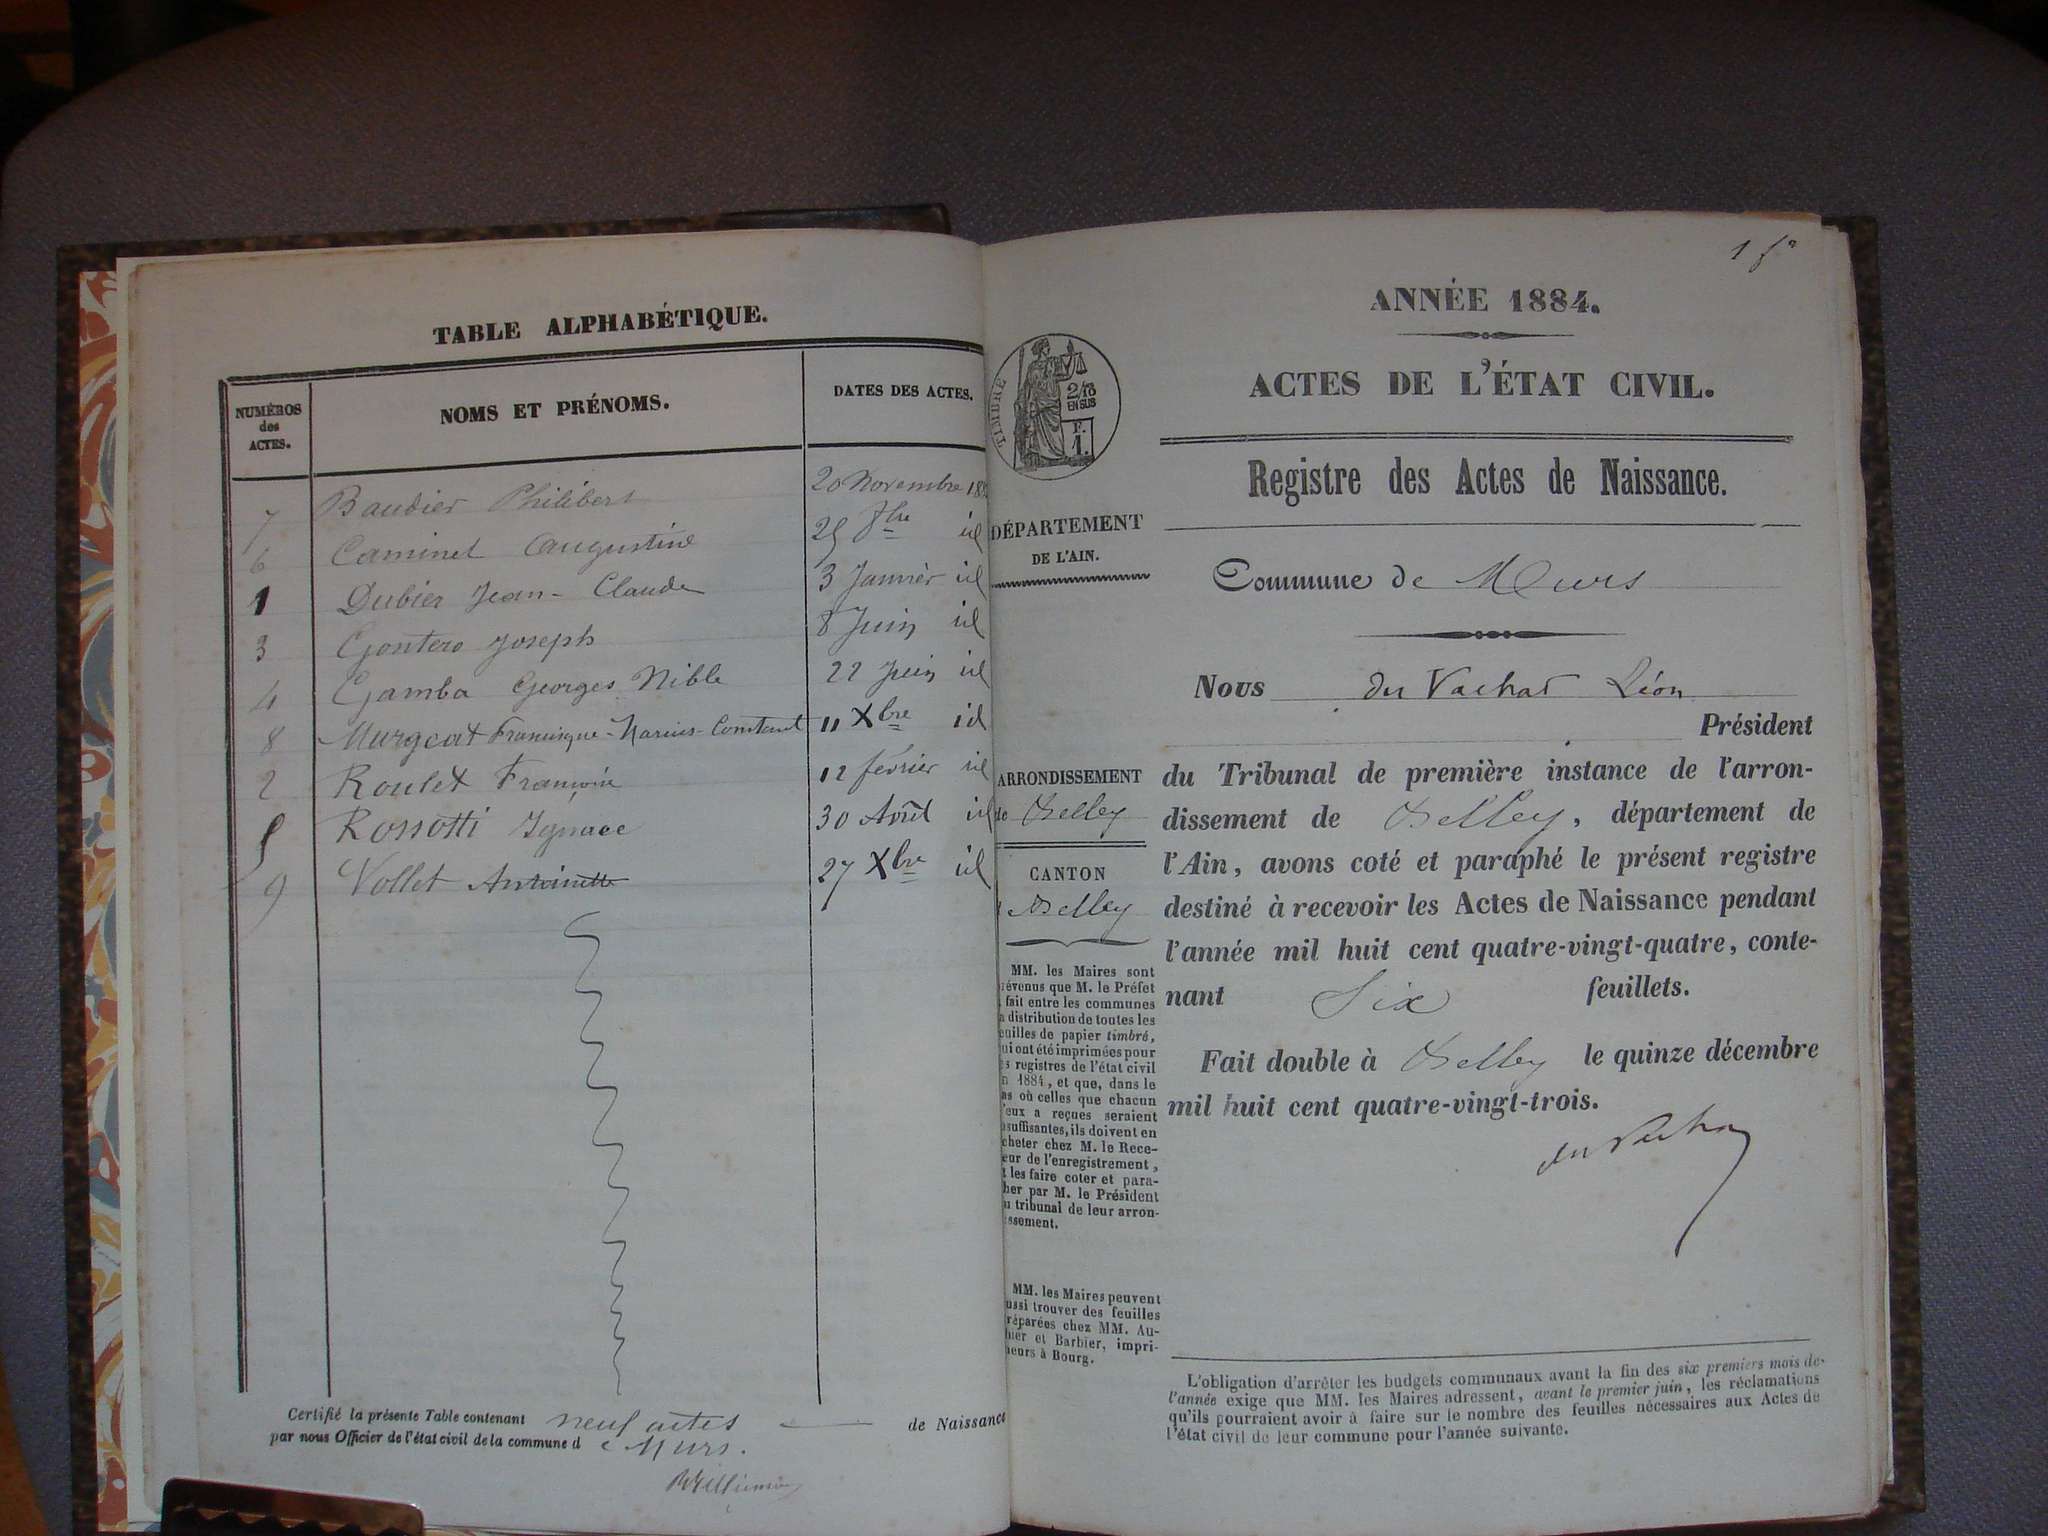 TABLE ALPHABÉTIQUE.
NUMÉROS des ACTES. NOMS ET PRÉNOMS. DATES DES ACTES.
7 Baudier Philibert 20 Novembre
6 Caminet Augustine 25 8bre id
1 Dubier Jean-Claude 3 Janvier id
3 Gontero Joseph 8 Juin id
4 Gamba Georges Nible 22 Juin id
8 Murgeat Francisque-Marius-Constant 11 Xbre id
2 Roulet 12 février id
5 Rossotti Ignace 30 Août id
9 Vollet Antoinette 27 Xbre id
Certifié la présente Table contenant neuf actes de Naissance
par nous Officier de l'état civil de la commune de Murs.
1 fo
ANNÉE 1884.
ACTES DE L'ÉTAT CIVIL.
TIMBRE
2/10
EN SUS
F.
1.
Registre des Actes de Naissance.
DÉPARTEMENT
DE L'AIN.
Commune de Murs
Nous du Vachat Léon
Président
du Tribunal de première instance de l'arron-
dissement de Belley, département de
l'Ain, avons coté et paraphé le présent registre
destiné à recevoir les Actes de Naissance pendant
l'année mil huit cent quatre-vingt-quatre, conte-
nant Six feuillets.
Fait double à Belley le quinze décembre
mil huit cent quatre-vingt-trois.
du Vachat
ARRONDISSEMENT
de Belley
CANTON
Belley
MM. les Maires sont
révenus que M. le Préfet
fait entre les communes
a distribution de toutes les
euilles de papier timbré,
ui ont été imprimées pour
s registres de l'état civil
n 1884, et que, dans le
as où celles que chacun
'eux a reçues seraient
suffisantes, ils doivent en
cheter chez M. le Rece-
eur de l'enregistrement,
les faire coter et para-
her par M. le Président
u tribunal de leur arron-
ssement.
MM. les Maires peuvent
ussi trouver des feuilles
réparées chez MM. Au-
hier et Barbier, impri-
eurs à Bourg.
L'obligation d'arrêter les budgets communaux avant la fin des six premiers mois de
l'année exige que MM. les Maires adressent, avant le premier juin, les réclamations
qu'ils pourraient avoir à faire sur le nombre des feuilles nécessaires aux Actes de
l'état civil de leur commune pour l'année suivante.